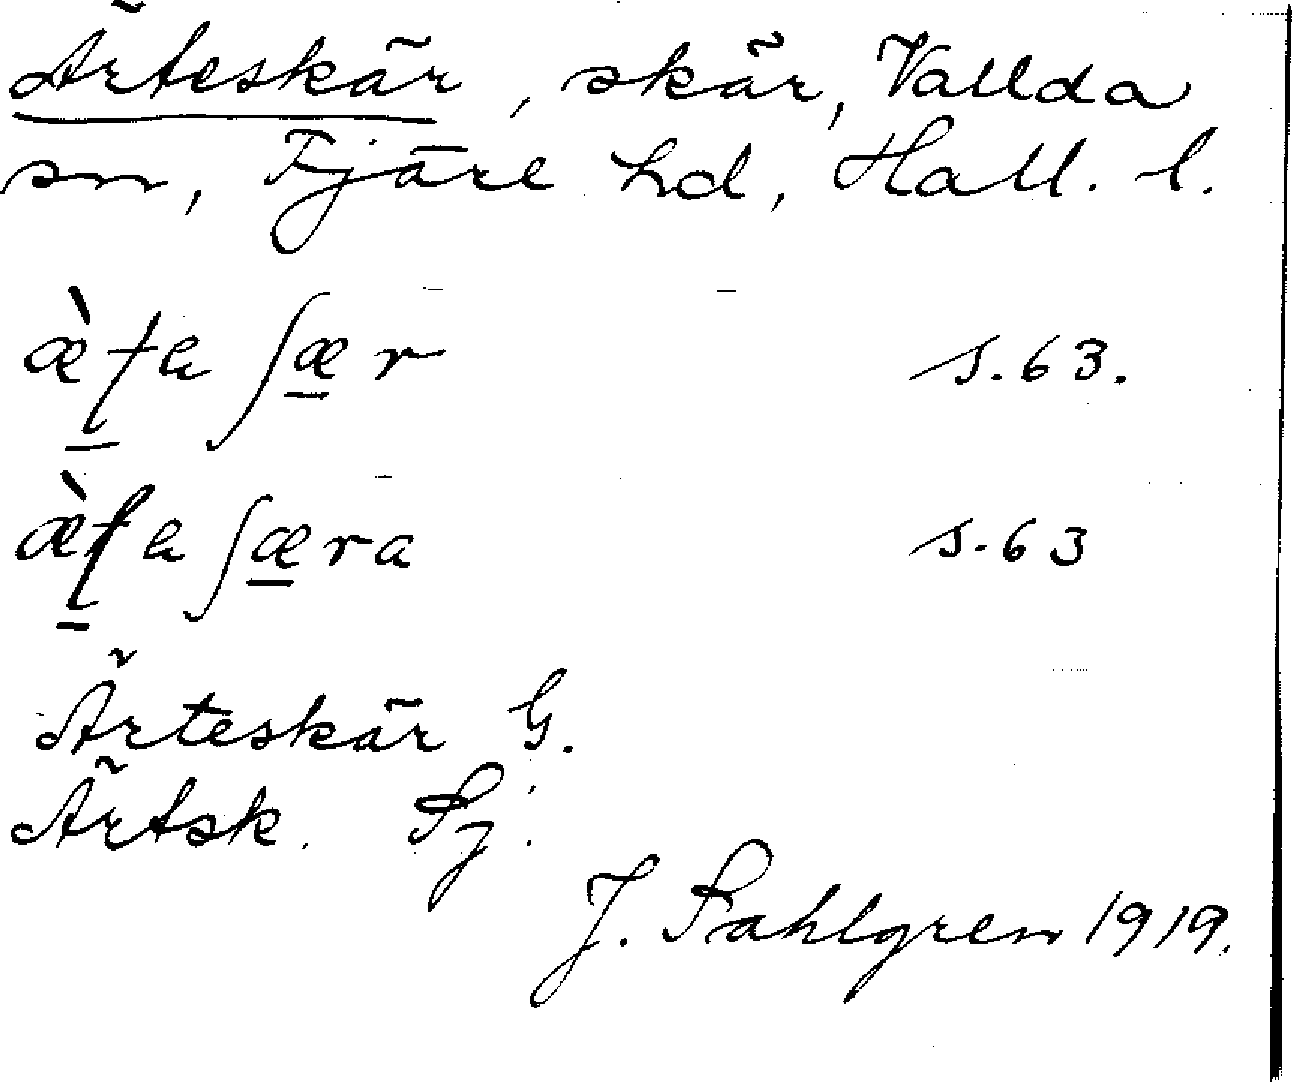 Ärteskär, skär, Vallda
sn, Fjäre hd, Hall. l.
æ̀ʈa ʃæ̱r s. 63.
æ̀ʈa ʃæ̱ra s. 63
Ärteskär G.
Ärtsk. Sj.
J. Sahlgren 1919.